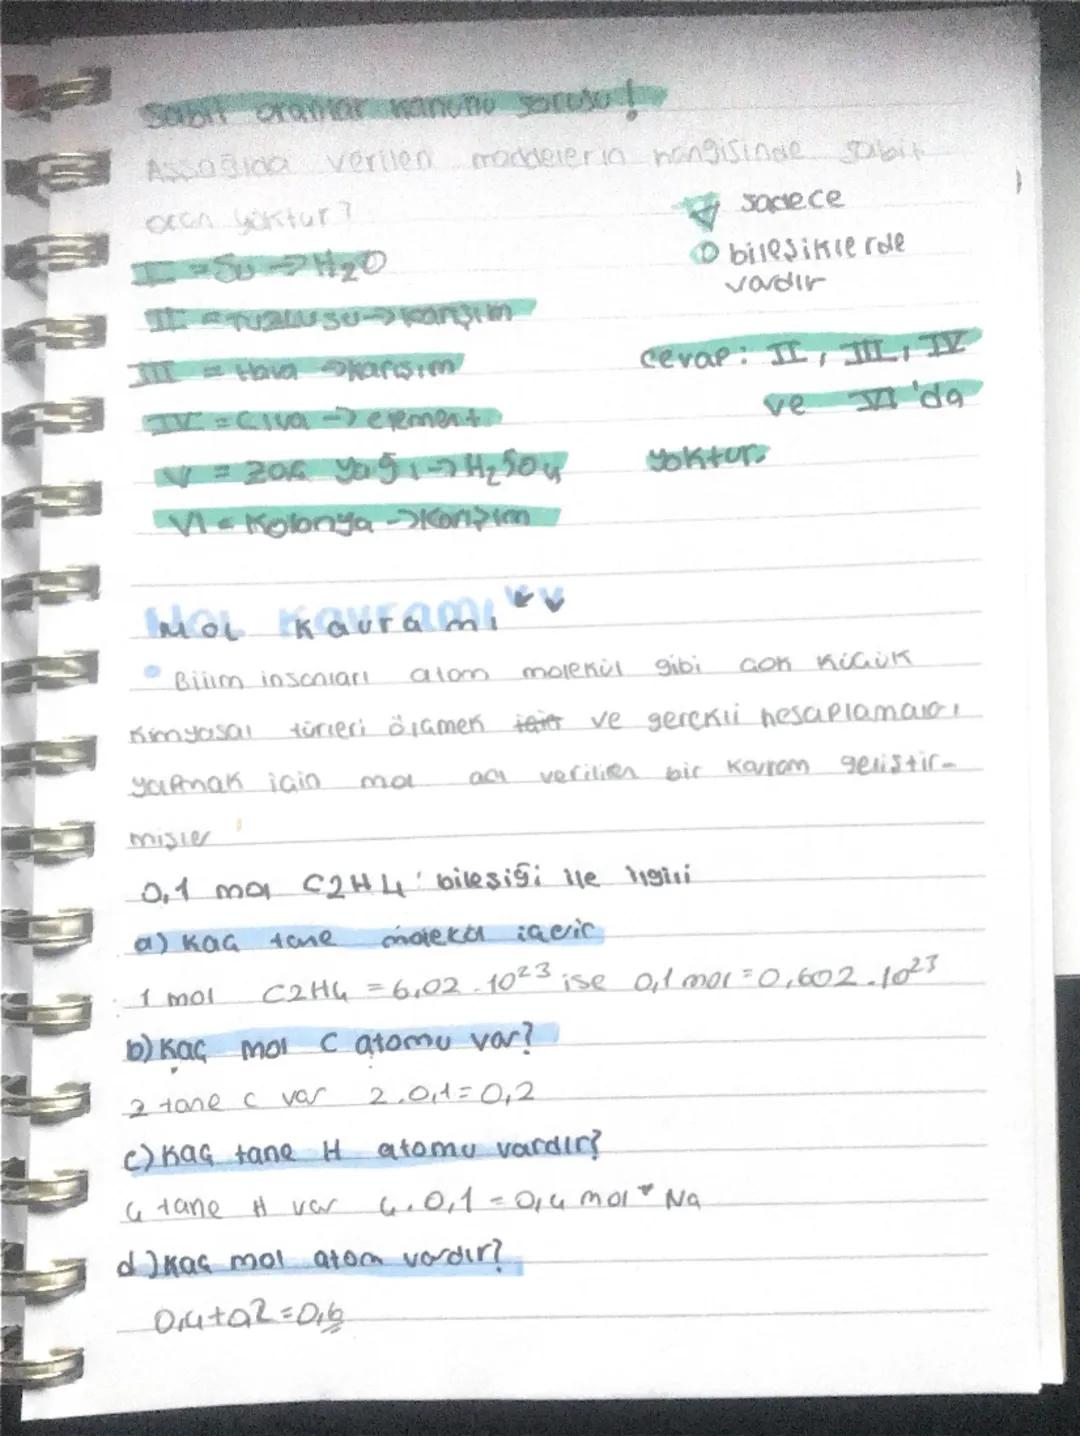 Sabit oranlar kanunu sorusu!
Assağıda verilen maddelerin hangisinde sabit
oran yoktur?
sadece
bileşiklerde
vardır
I = Su → H2O
II = Tuzlu su → karışım
III = Hava → karışım
IV = Civa → element
V = Zaç yağı → H2SO4
VI = Kolonya → Karışım
Cevap: II, III, IV
ve VI'da
yoktur.
Mol Kavramı
• Bilim insanları atom molekül gibi çok küçük
kimyasal türleri ölçmek için ve gerekli hesaplamaları
yapmak için mol adı verilen bir kavram geliştir-
mişler
0,1 mol C2H4 bileşiği ile ilgili
a) Kaç tane molekül içerir
1 mol C2H4 = 6,02 . 10^23 ise 0,1 mol = 0,602 . 10^23
b) Kaç mol C atomu var?
2 tane C var 2.0,1 = 0,2
c) Kaç tane H atomu vardır?
4 tane H var 4.0,1 = 0,4 mol * Na
d) Kaç mol atom vardır?
0,4+0,2 = 0,6